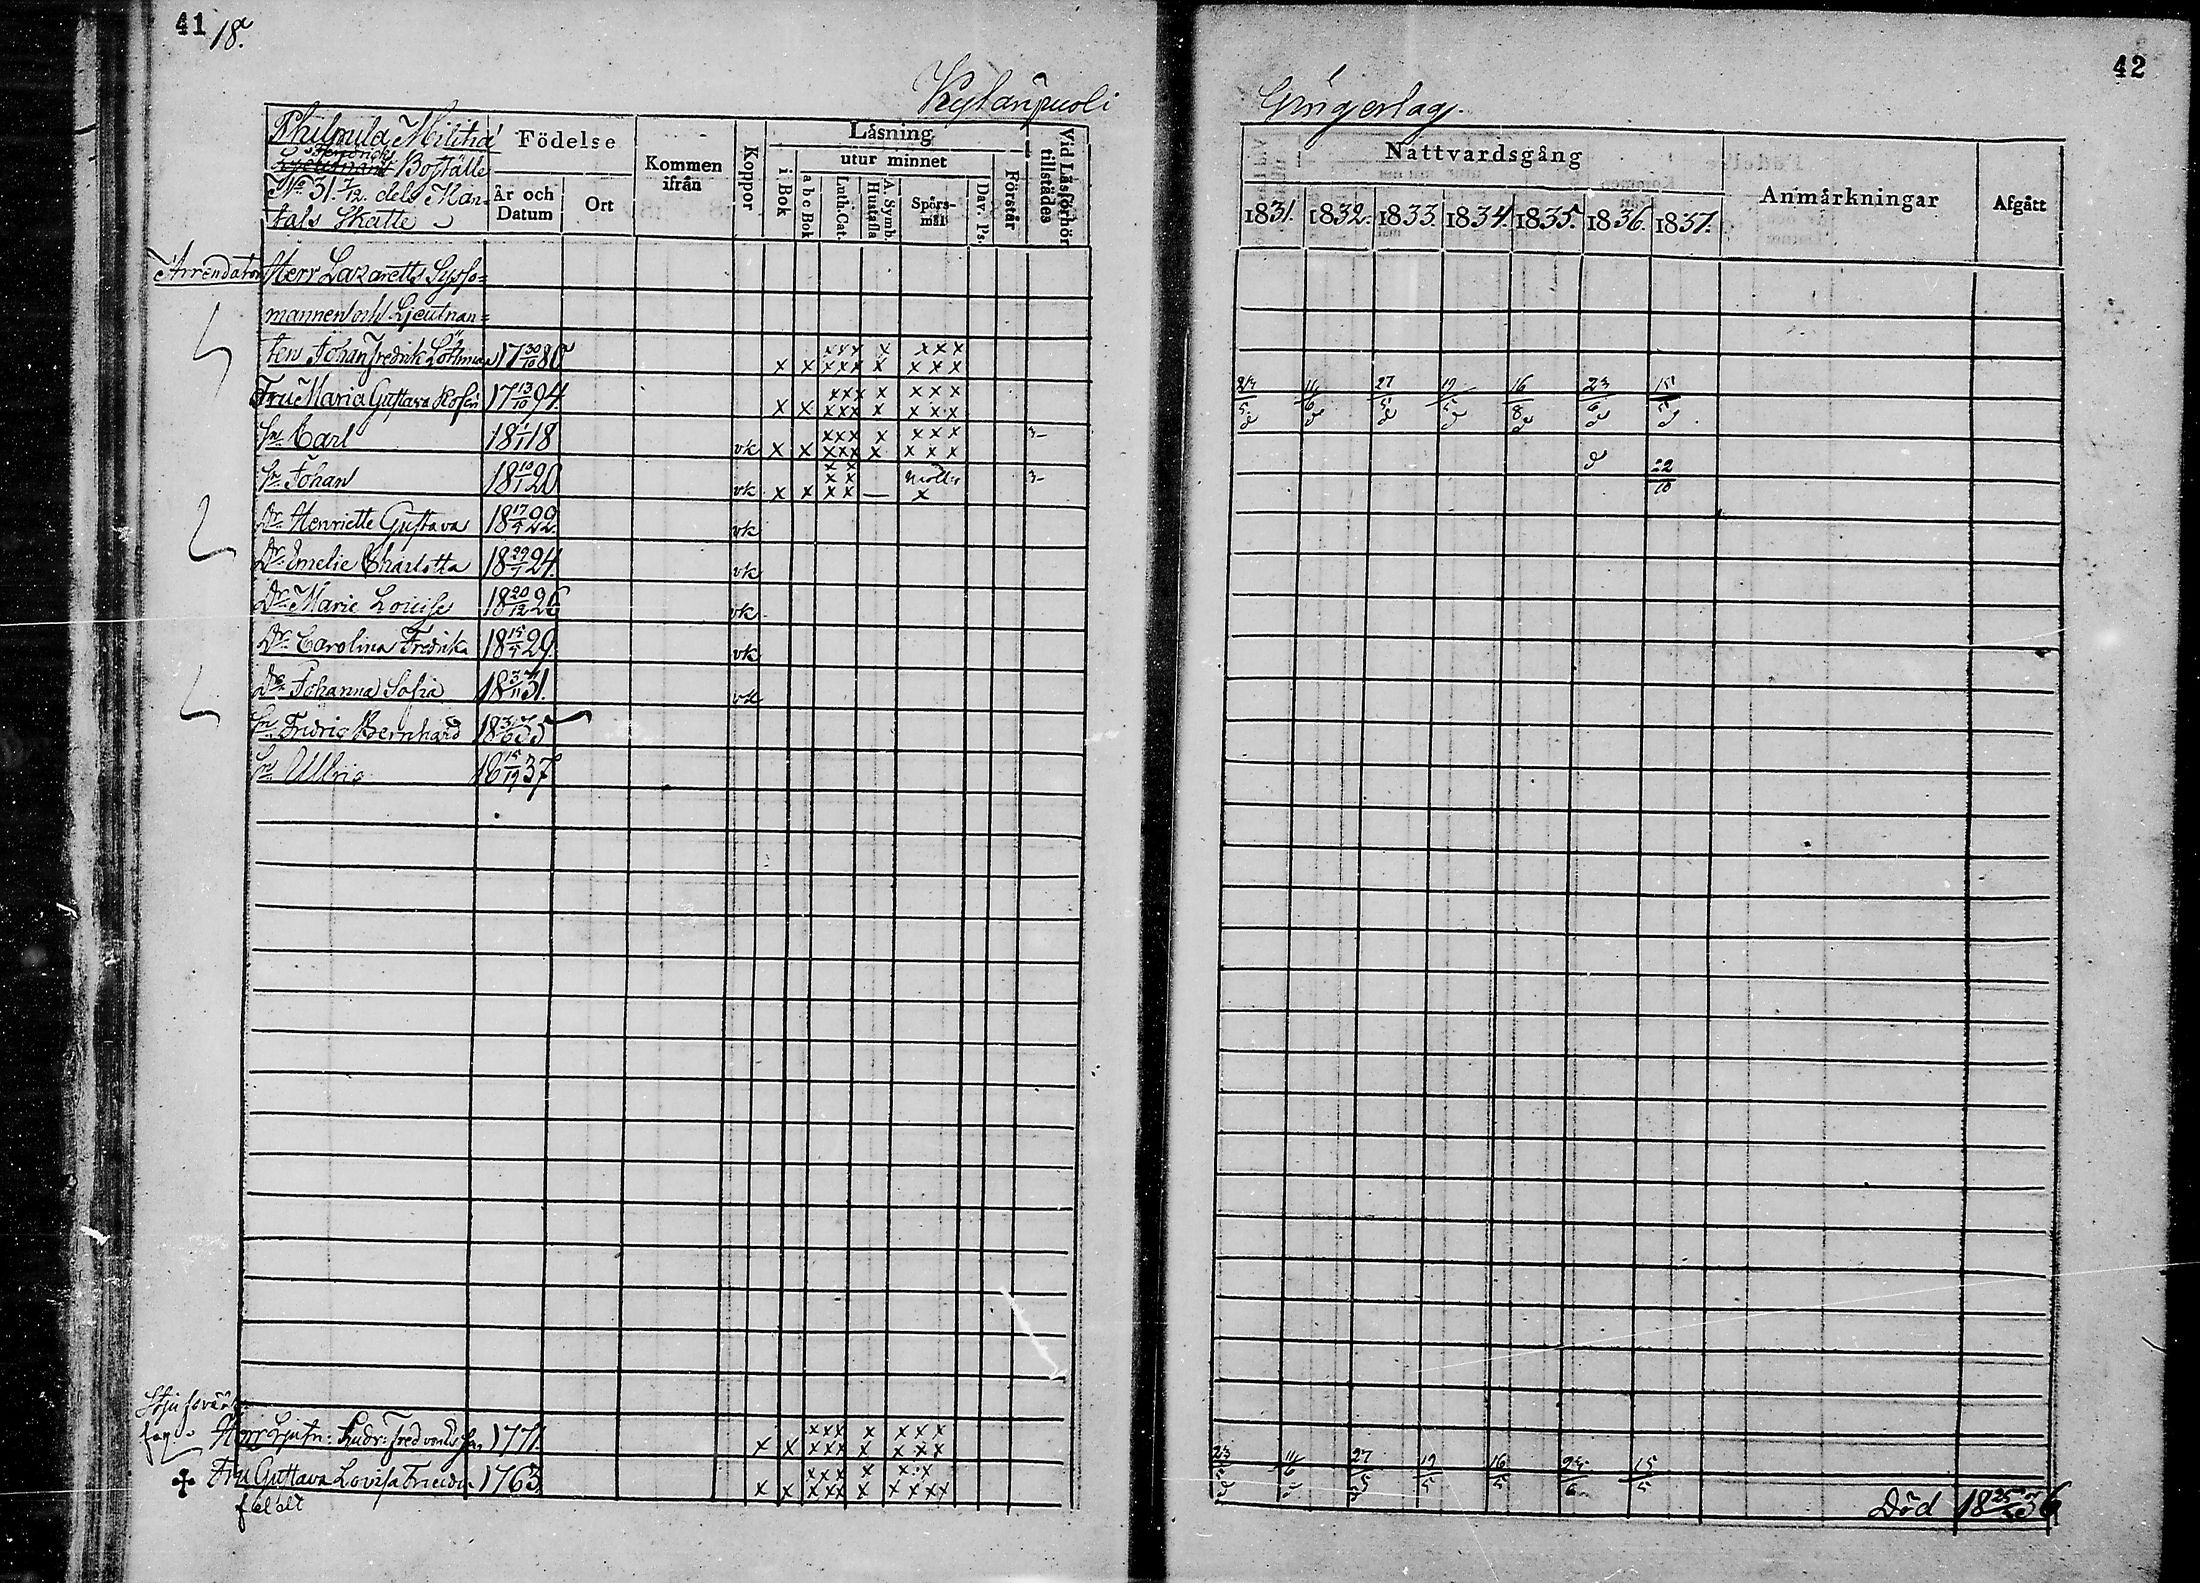 41 18.
Kylänpuoli
Philpula Militiä
Boställe
No 31. 7/12. dels Man-
tals Skatte
Födelse
År och Datum
Ort
Kommen ifrån
Koppor
Läsning
utur minnet
i Bok
a b c Bok
Luth. Cat.
Hustafla A. Symb.
Spörs-mål
Dav. Ps.
Förstår
Vid Läsförhör tillstädes
Arrendator Herr Lazaretts Sysslo=
mannen och Lieutnan=
ten Johan Fredrik Löthman 17 30/10 86 x x xxx xxx x x xxx xxx
Fru Maria Gustava Rosén 17 13/10 94. x x xxx xxx x x xxx xxx
Sn. Carl 18 1/1 18 vk x x xxx xxx x x xxx xxx 3-
Sn. Johan 18 10/1 20 vk x x x x x x x x — x 3-
Dr. Henriette Gustava 18 17/4 22 vk
Dr. Emelie Charlotta 18 29/1 24. vk
Dr. Marie Louise 18 20/12 26 vk
Dr. Carolina Fredrika 18 15/4 29. vk
Dr. Johanna Sofia 18 3/11 31. vk
Sn. Fredric Bernhard 18 31/6 35
Sn. Ulric 18 15/12 37
Herr Ljutn: 1771. x x xxx xxx x x xxx xxx
Fru Gustava Lovisa 1763 x x xxx xxx x x x x x x x x x
42
Gingerlag.
Nattvardsgång
Anmärkningar
Afgått
1831. 1832. 1833. 1834. 1835. 1836. 1837.
23/5 11/6 27/5 19/5 16/8 23/6 15/5
22/10
23/5 11/6 27/5 19/5 16/5 23/6 15/5
Död 18 25/2 36